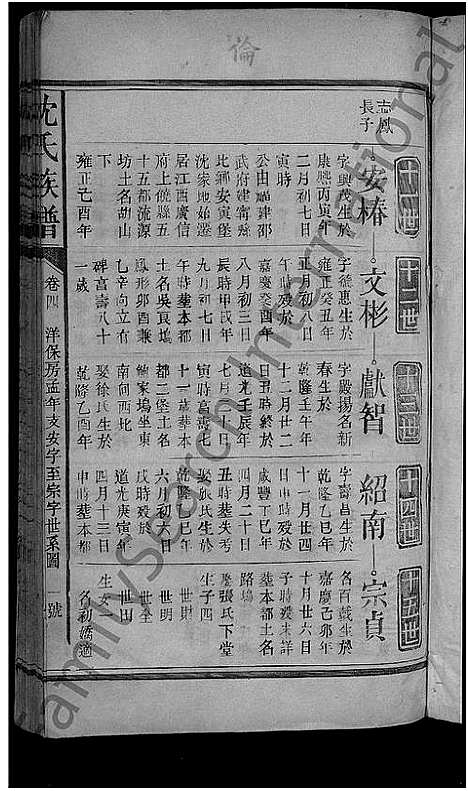 倫
志鳳
長子
十一世
安椿
字興茂生於
康熙丙寅年
二月初七日
寅時
公由福建邵
武府建寧縣
比鄉安寅堡
沈家地始遷
居江西廣信
府上饒縣五
十五都流源
坊土名胡山
下
雍正己酉年
十二世
文彬
字德惠生於
雍正癸丑年
正月初八日
午時歿於
嘉慶癸酉年
八月初三日
辰時
九月初七日
午時葬本都
土名吳家塢
鳳形卯酉兼
乙辛向立有
碑富壽八十
一歲
十三世
獻智
字殿揚名新
春生於
乾隆壬午年
十二月廿二
日丑時終於
道光壬辰年
七月二日
寅時富壽七
十一歲葬本
都二堡土名
鮑家塢坐東
南向西北
娶徐氏生於
乾隆乙酉年
十四世
紹南
字壽昌生於
乾隆乙巳年
十一月廿四
日申時歿於
咸豐丁巳年
四月二十日
丑時葬失考
娶姚氏生於
乾隆乙巳年
六月初六日
戌時歿於
道光庚寅年
四月十三日
申時葬本都
十五世
宗貞
名百歲生於
嘉慶己卯年
十月廿六日
子時歿未詳
葬本都土名
路塢
娶張氏下堂
生子四
世財
世明
世全
世田
生女一
名初嬌適
沈氏族譜
卷四
洋保房孟年支安字至宗字世系圖
一號
FamilySearch International